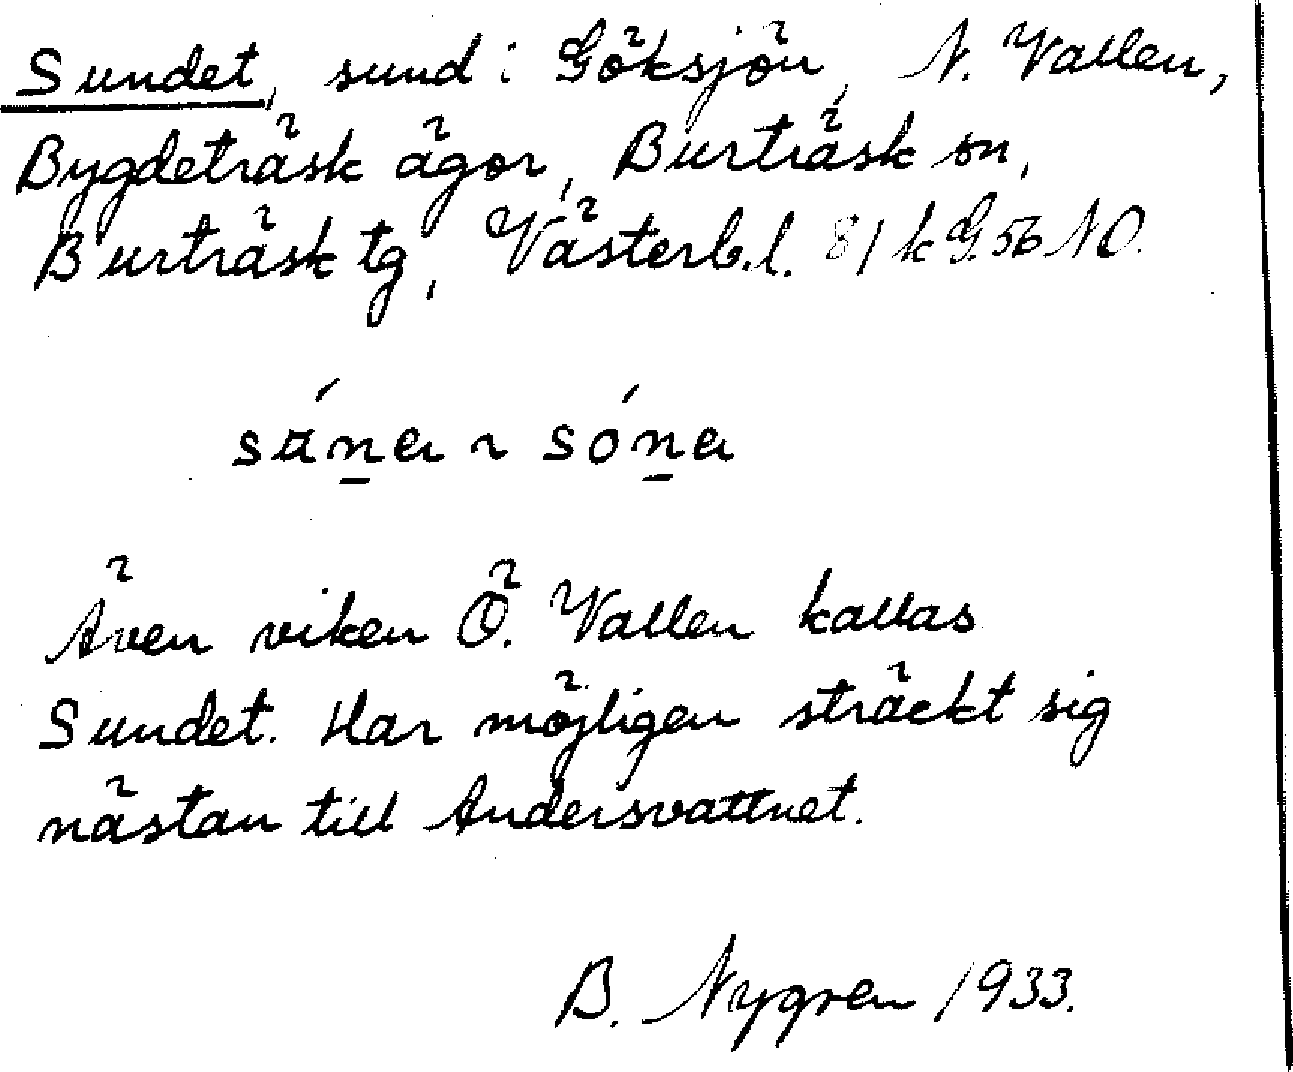 Sundet, sund i Göksjön, N. Vallen,
Bygdeträsk ägor, Burträsk sn,
Burträsk tg, Västerb.l. 81 k G. 56 NO.
sána ~ sóna
Även viken Ö. Vallen kallas
Sundet. Har möjligen sträckt sig
nästan till Andersvattnet.
B. Nygren 1933.